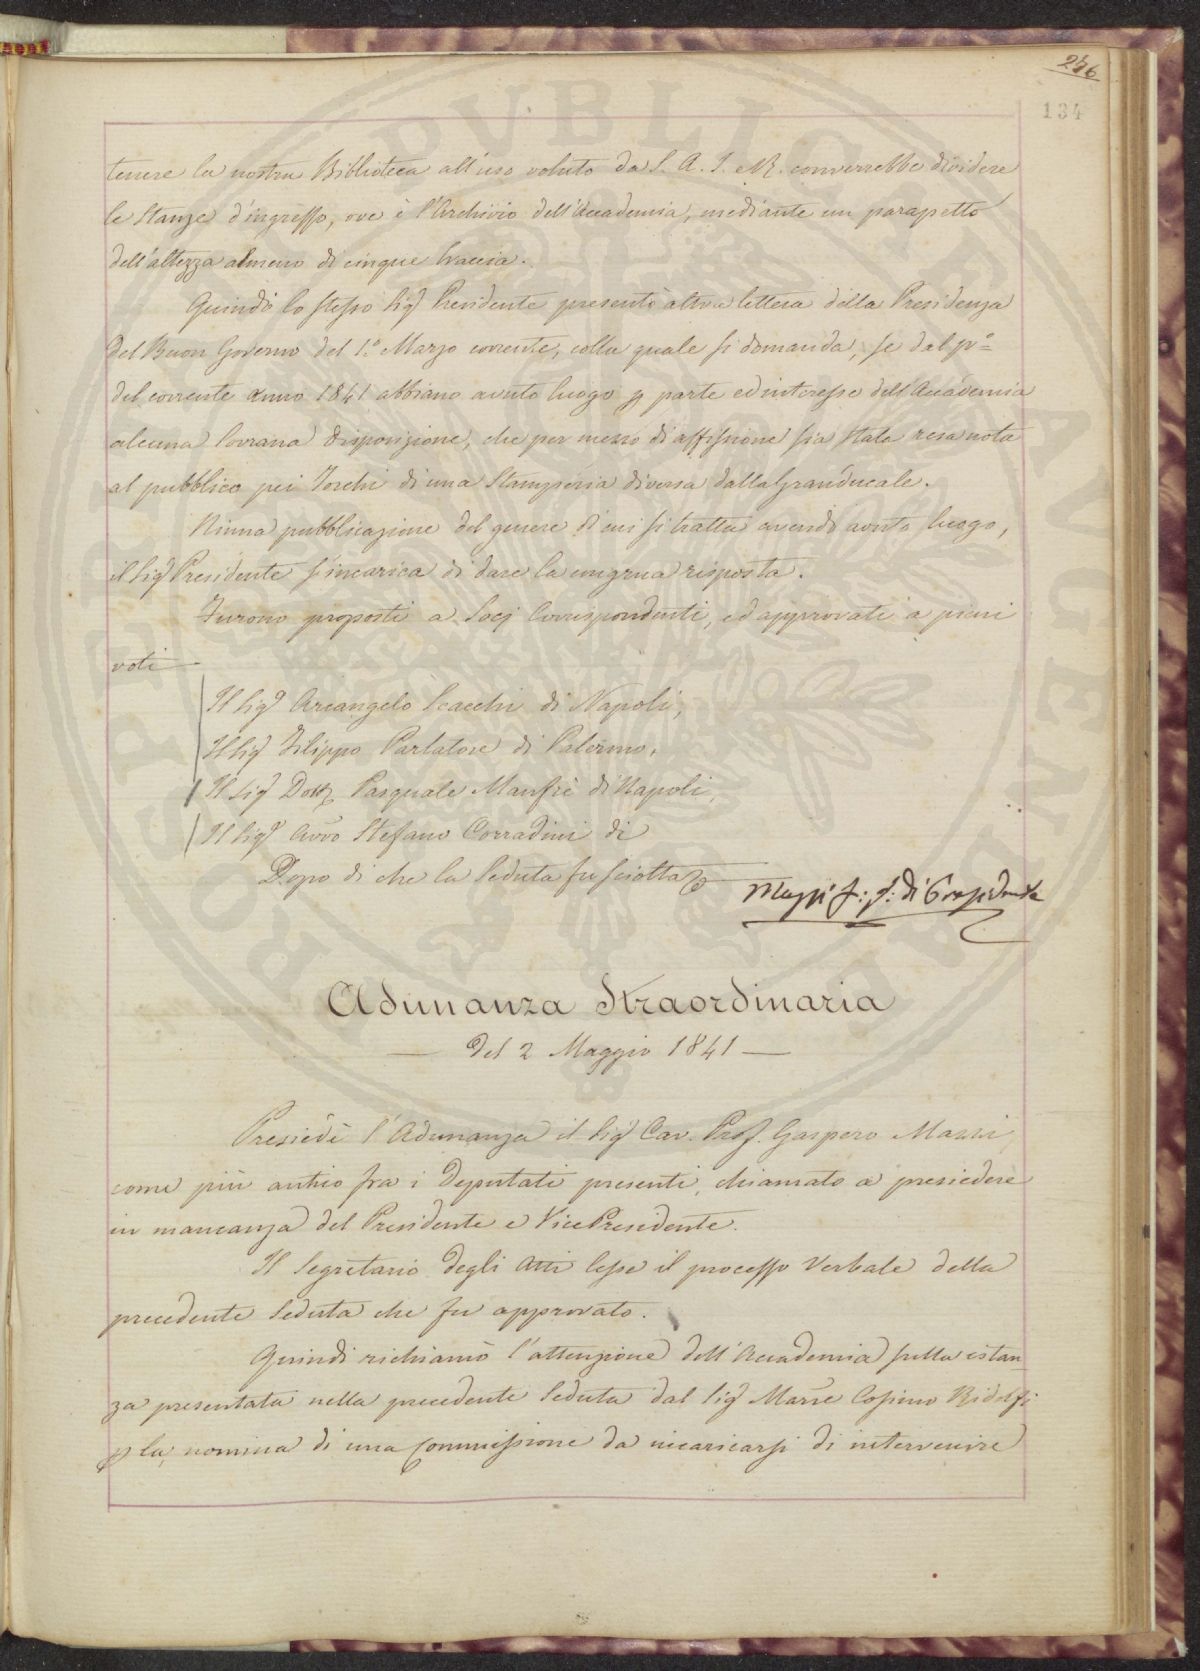 246
134
tenere la nostra Biblioteca all'uso voluto da S. A. I. e R. converrebbe dividere
le Stanze d'ingresso, ove è l'Archivio dell'Accademia, mediante un parapetto
dell'altezza almeno di cinque braccia.
Quindi lo stesso Sig.r Presidente presentò altra lettera della Presidenza
del Buon Governo del 1.o Marzo corrente, colla quale si domanda, se dal p.o
del corrente anno 1841 abbiano avuto luogo p parte ed interesse dell'Accademia
alcuna Sovrana disposizione, che per mezzo di affissione sia stata resa nota
al pubblico pei Torchi di una Stamperia diversa dalla Granducale.
Niuna pubblicazione del genere di cui si tratta avendo avuto luogo,
il Sig.r Presidente s'incarica di dare la congrua risposta.
Furono proposti a Socj Corrispondenti, ed approvati a pieni
voti
Il Sig.r Arcangelo Scacchi di Napoli,
Il Sig.r Filippo Parlatore di Palermo,
Il Sig.r Dott. Pasquale Manfrè di Napoli,
Il Sig.r Avvo Stefano Corradini di
Dopo di che la Seduta fu sciolta
Mazzi f: f: di Presidente
Adunanza Straordinaria
— del 2 Maggio 1841 —
Presiedè l'Adunanza il Sig.r Cav. Prof. Gaspero Mazzi,
come più antico fra i Deputati presenti, chiamato a presiedere
in mancanza del Presidente e Vice Presidente.
Il Segretario degli Atti lesse il processo Verbale della
precedente Seduta che fu approvato.
Quindi richiamò l'attenzione dell'Accademia sulla istan-
za presentata nella precedente Seduta dal Sig.r Marse Cosimo Ridolfi
p la nomina di una Commissione da incaricarsi di intervenire